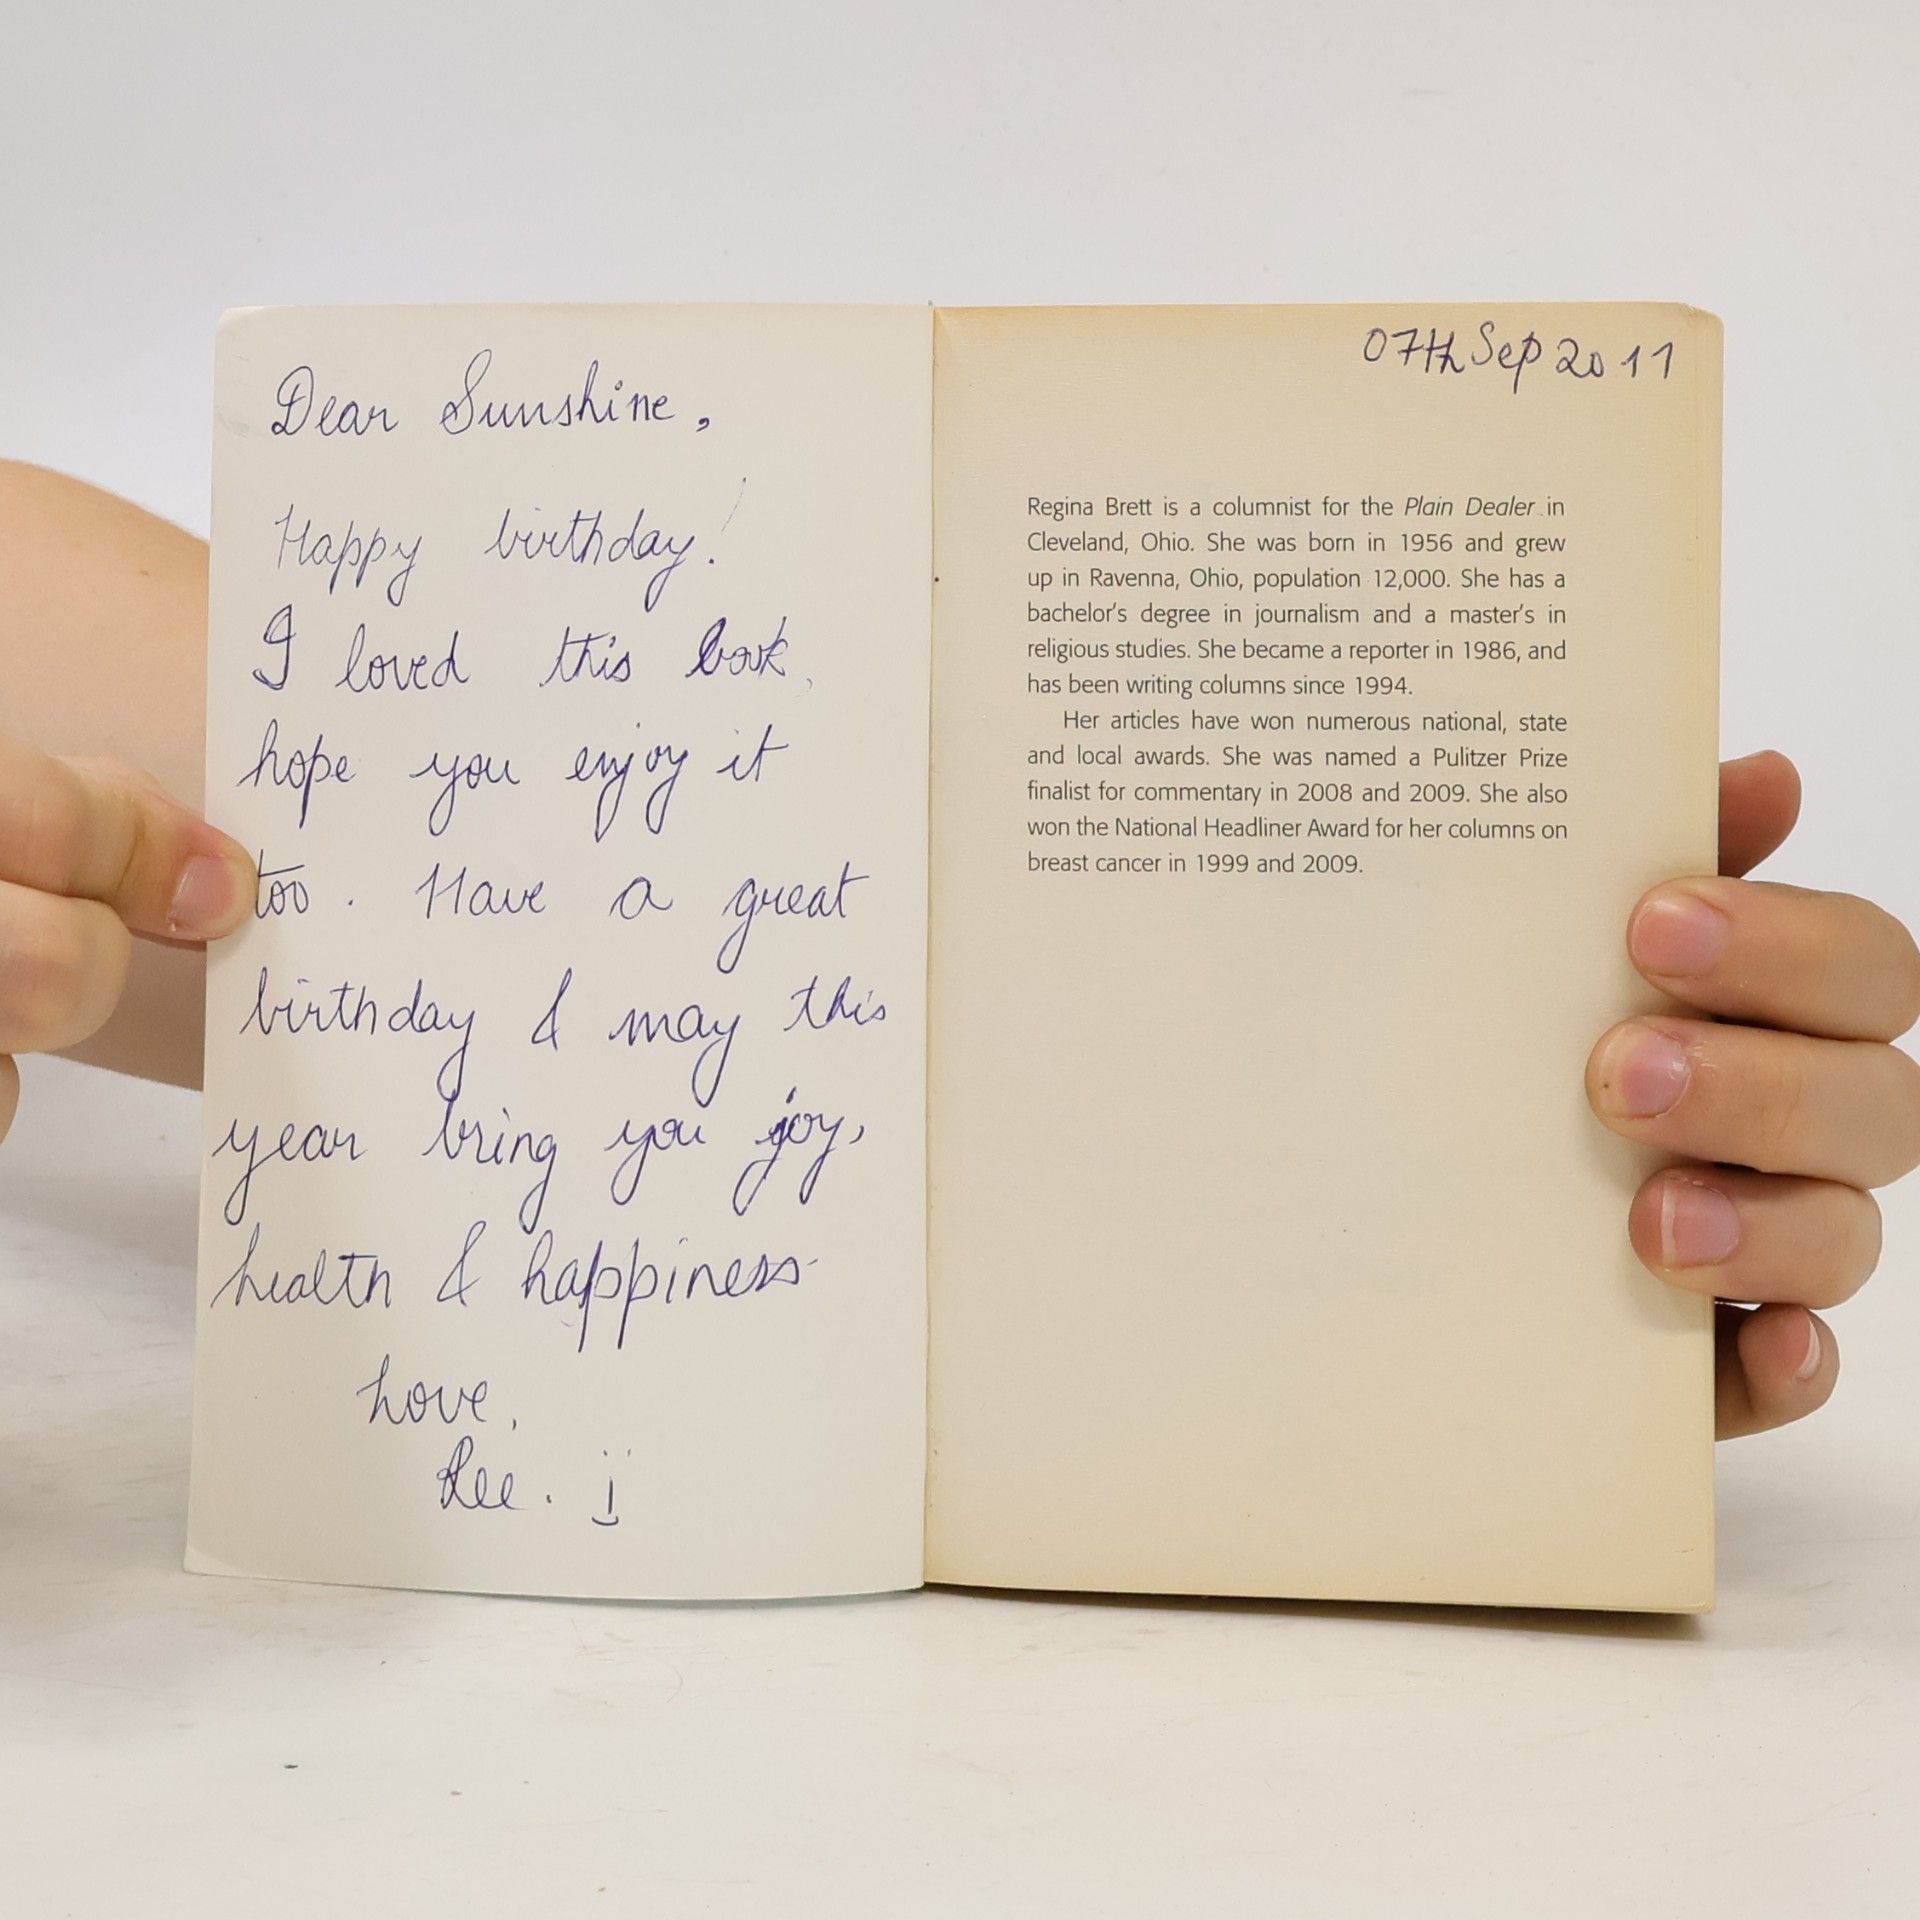 Dear Sunshine,
Happy birthday!
I loved this book,
hope you enjoy it
too. Have a great
birthday & may this
year bring you joy,
health & happiness
Love,
Ree. :)
07th Sep 2011
Regina Brett is a columnist for the Plain Dealer in
Cleveland, Ohio. She was born in 1956 and grew
up in Ravenna, Ohio, population 12,000. She has a
bachelor's degree in journalism and a master's in
religious studies. She became a reporter in 1986, and
has been writing columns since 1994.
Her articles have won numerous national, state
and local awards. She was named a Pulitzer Prize
finalist for commentary in 2008 and 2009. She also
won the National Headliner Award for her columns on
breast cancer in 1999 and 2009.